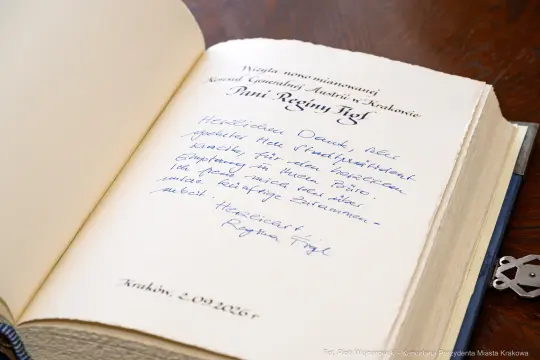 Wizyta nowo mianowanej
Konsul Generalnej Austrii w Krakowie
Pani Reginy Figl
Herzlichen Dank, sehr
geehrter Herr Stadtpräsident
für den herzlichen
Empfang in Ihrem Büro.
Ich freue mich sehr über
unsere künftige Zusammen-
arbeit.
Herzlichst,
Regina Figl
Kraków, 2.09.2026 r
Fot. Piotr Wojnarowski – Kancelaria Prezydenta Miasta Krakowa